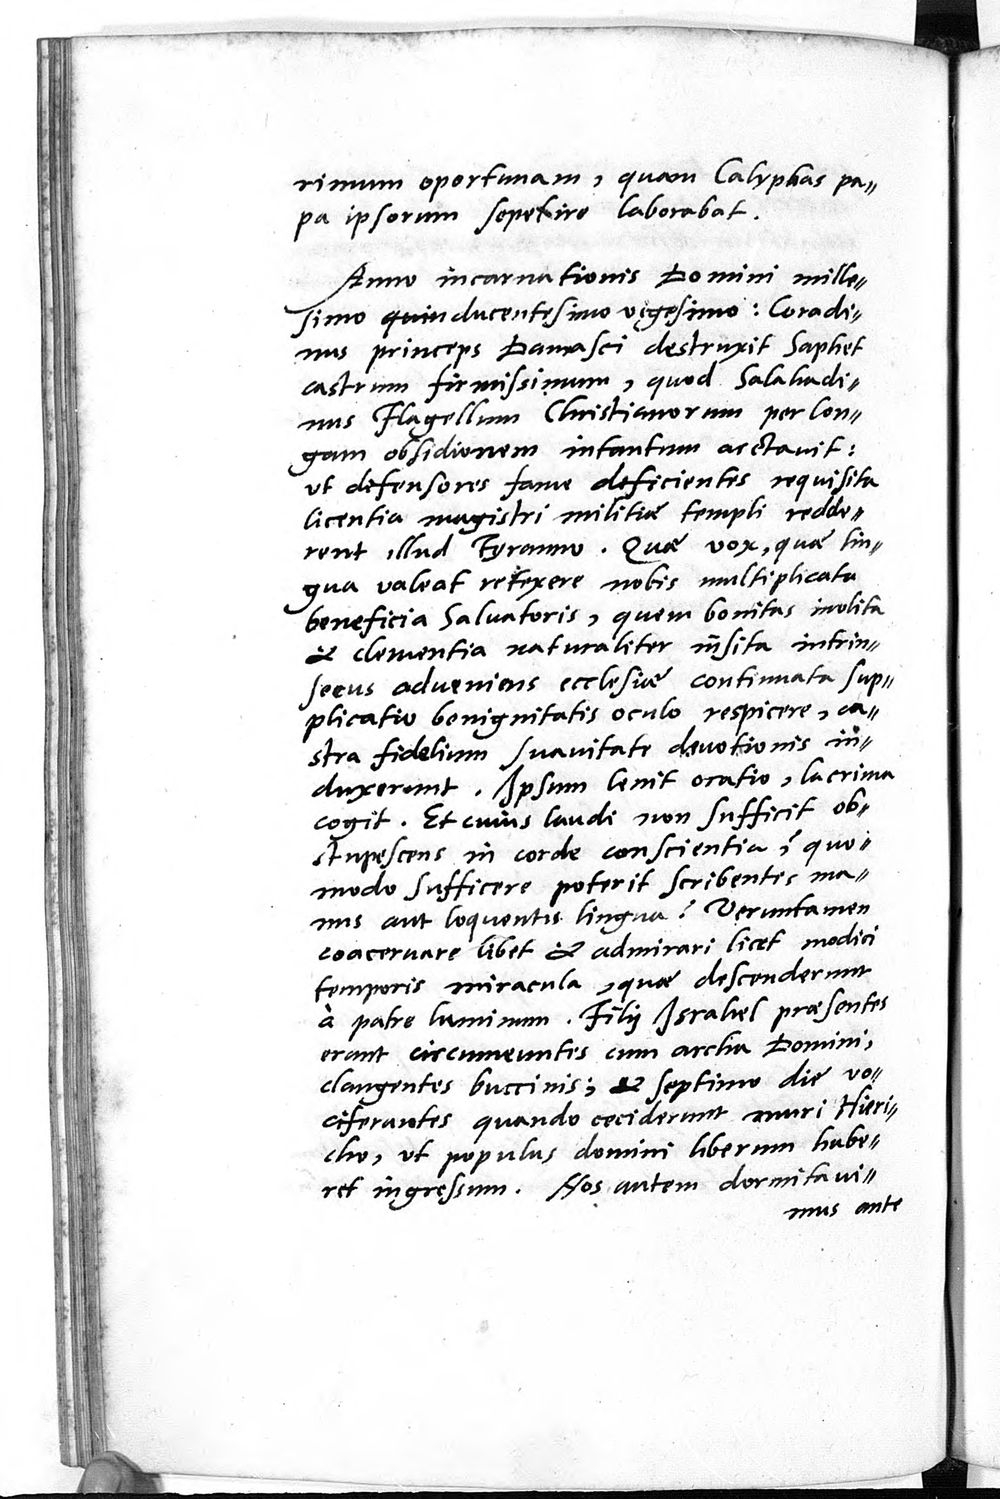 rimum oportunam, quam Calyphas pa„
pa ipsorum sepelire laborabat.
Anno incarnationis Domini mille„
simo ducentęsimo vigesimo: Coradi„
nus princeps Damasci destruxit Saphet
castrum firmissimum, quod Salahadi„
nus Flagellum Christianorum per lon„
gam obsidionem intantum arctavit:
ut defensores fame deficientes requisita
licentia magistri militiæ templi redde„
rent illud Tyranno. Quæ vox, quæ lin„
gua valeat retexere nobis multiplicata
beneficia Salvatoris, quem bonitas inolita
& clementia naturaliter insita intrin„
secus adveniens ecclesiæ continuata sup„
plicatio benignitatis oculo respicere, ca„
stra fidelium suavitate devotionis in„
duxerunt. Ipsum lenit oratio, lacrima
cogit. Et cuius laudi non sufficit ob„
stupescens in corde conscientia? quo„
modo sufficere poterit scribentis ma„
nus aut loquentis lingua? Veruntamen
coacervare libet & admirari licet modici
temporis miracula, quæ descenderunt
à patre luminum. Filij Israhel præsentes
erant circumeuntes cum archa Domini,
clangentes buccinis; & septimo die vo„
ciferantes quando ceciderunt muri Hieri„
cho, ut populus domini liberum habe„
ret ingressum. Nos autem dormitavi„
mus ante